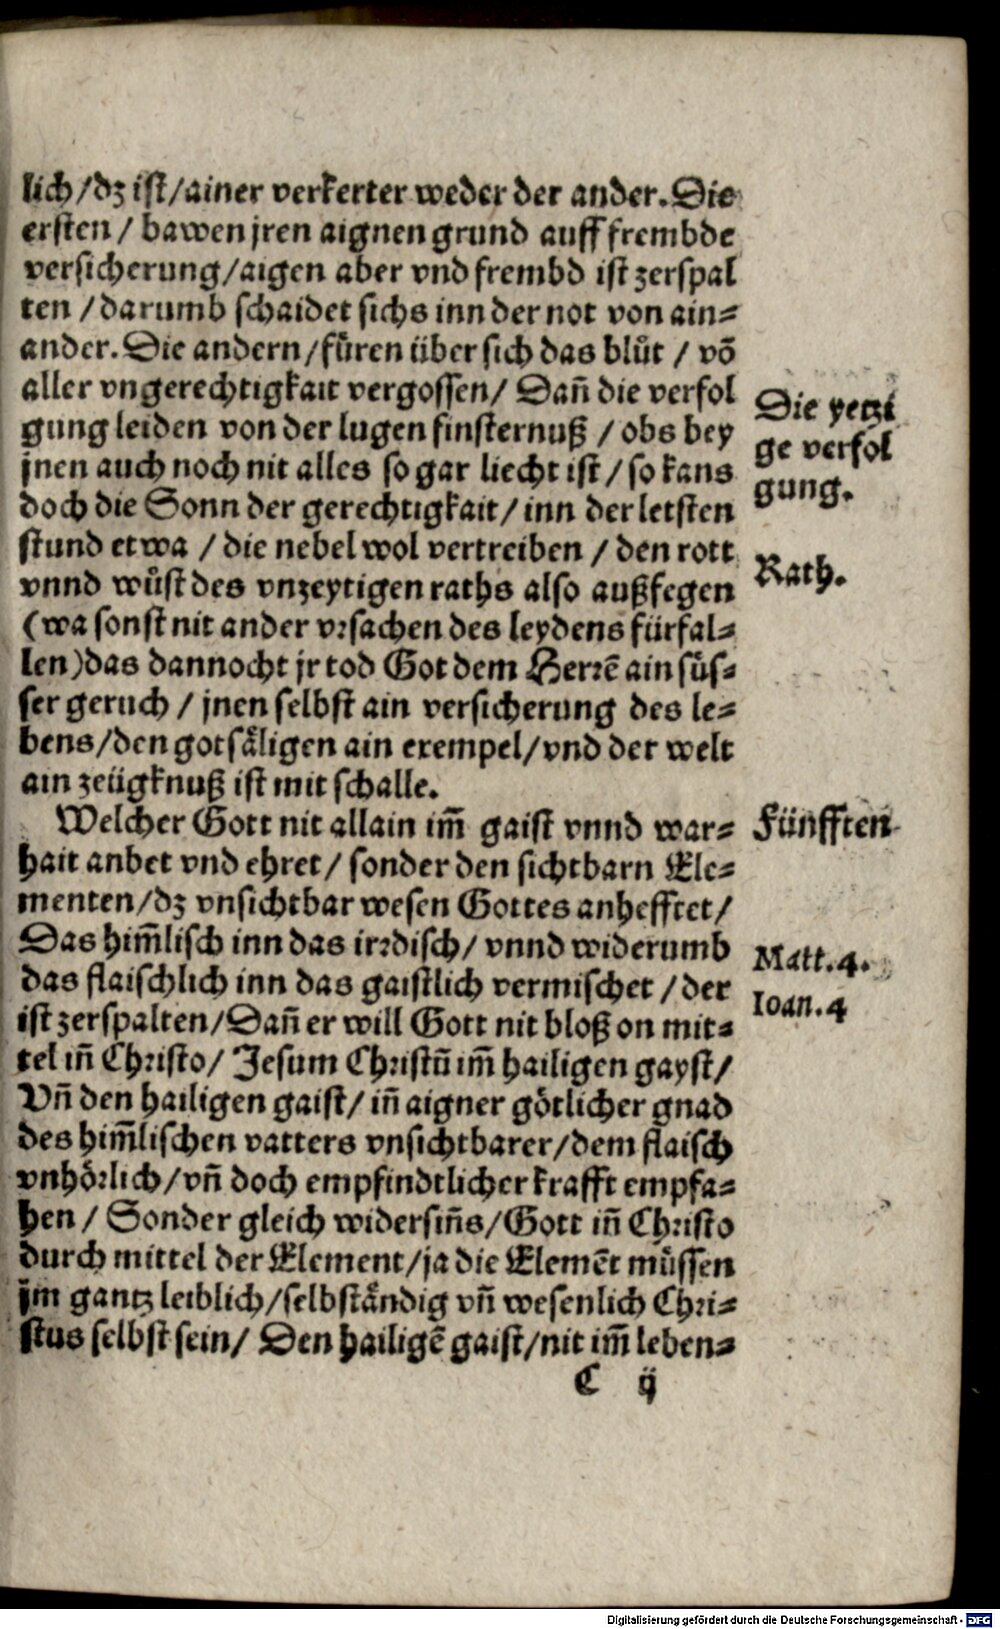 lich/dz ist/ainer verkerter weder der ander. Die
ersten / bawen jren aignen grund auff frembde
versicherung/aigen aber vnd frembd ist zerspal
ten /darumb schaidet sichs inn der not von ain⸗
ander. Die andern/fuͤren über sich das bluͦt / võ
aller vngerechtigkait vergossen/ Dañ die verfol
gung leiden von der lugen finsternuß / obs bey
jnen auch noch nit alles so gar liecht ist/so kans
doch die Sonn der gerechtigkait/ inn der letsten
stund etwa / die nebel wol vertreiben / den rott
vnnd wuͦst des vnzeytigen raths also außfegen
(wa sonst nit ander vrsachen des leydens fürfal⸗
len)das dannocht jr tod Got dem Herrẽ ain suͤs⸗
ser geruch / jnen selbst ain versicherung des le⸗
bens/den gotsåligen ain exempel/vnd der welt
ain zeügknuß ist mit schalle.
Welcher Gott nit allain im̃ gaist vnnd war⸗
hait anbet vnd ehret/ sonder den sichtbarn Ele⸗
menten/dz vnsichtbar wesen Gottes anhefftet/
Das him̃lisch inn das irrdisch/ vnnd widerumb
das flaischlich inn das gaistlich vermischet /der
ist zerspalten/Dañ er will Gott nit bloß on mit⸗
tel iñ Christo/ Jesum Christũ im̃ hailigen gayst/
Vñ den hailigen gaist/ iñ aigner goͤtlicher gnad
des him̃lischen vatters vnsichtbarer/dem flaisch
vnhoͤrlich/vñ doch empfindtlicher krafft empfa⸗
hen / Sonder gleich widersiñs/Gott iñ Christo
durch mittel der Element/ja die Elemẽt muͤssen
jm gantz leiblich/selbståndig vñ wesenlich Chri⸗
stus selbst sein/ Den hailigẽ gaist/nit im̃ leben⸗
C ij
Die yetzi
ge verfol
gung.
Rath.
Fünfften
Matt.4.
Ioan.4
Digitalisierung gefördert durch die Deutsche Forschungsgemeinschaft - DFG